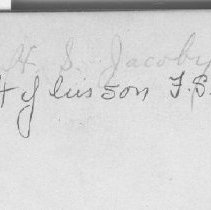 H. S. Jacoby
of his son F. S.